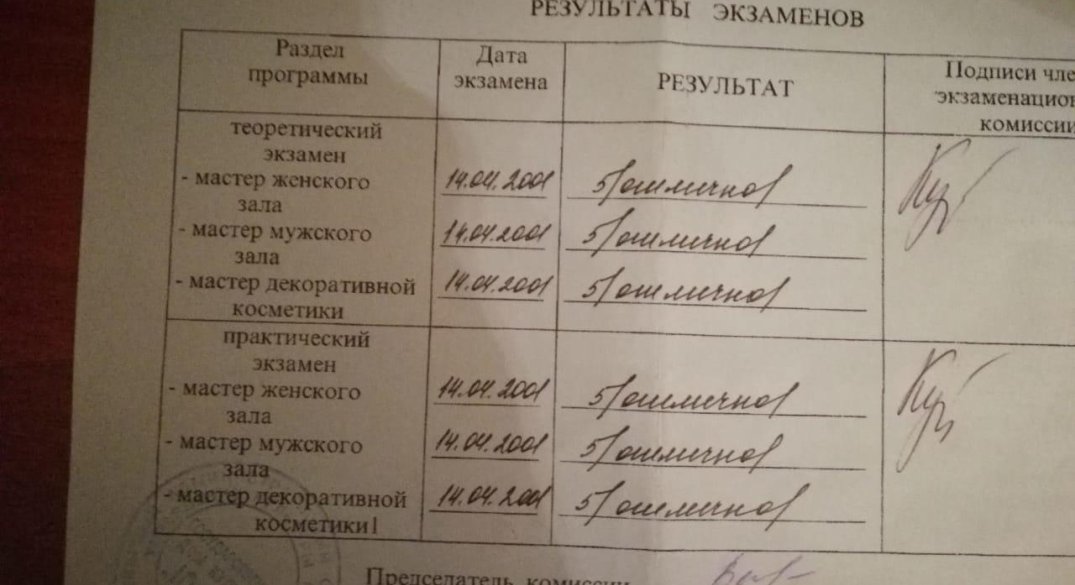 РЕЗУЛЬТАТЫ ЭКЗАМЕНОВ
Раздел программы
Дата экзамена
РЕЗУЛЬТАТ
Подписи чле
экзаменацион
комиссии
теоретический
экзамен
- мастер женского зала 14.04.2001 5/отлично/
- мастер мужского зала 14.04.2001 5/отлично/
- мастер декоративной косметики 14.04.2001 5/отлично/
практический
экзамен
- мастер женского зала 14.04.2001 5/отлично/
- мастер мужского зала 14.04.2001 5/отлично/
- мастер декоративной косметики 14.04.2001 5/отлично/
Председатель комиссии